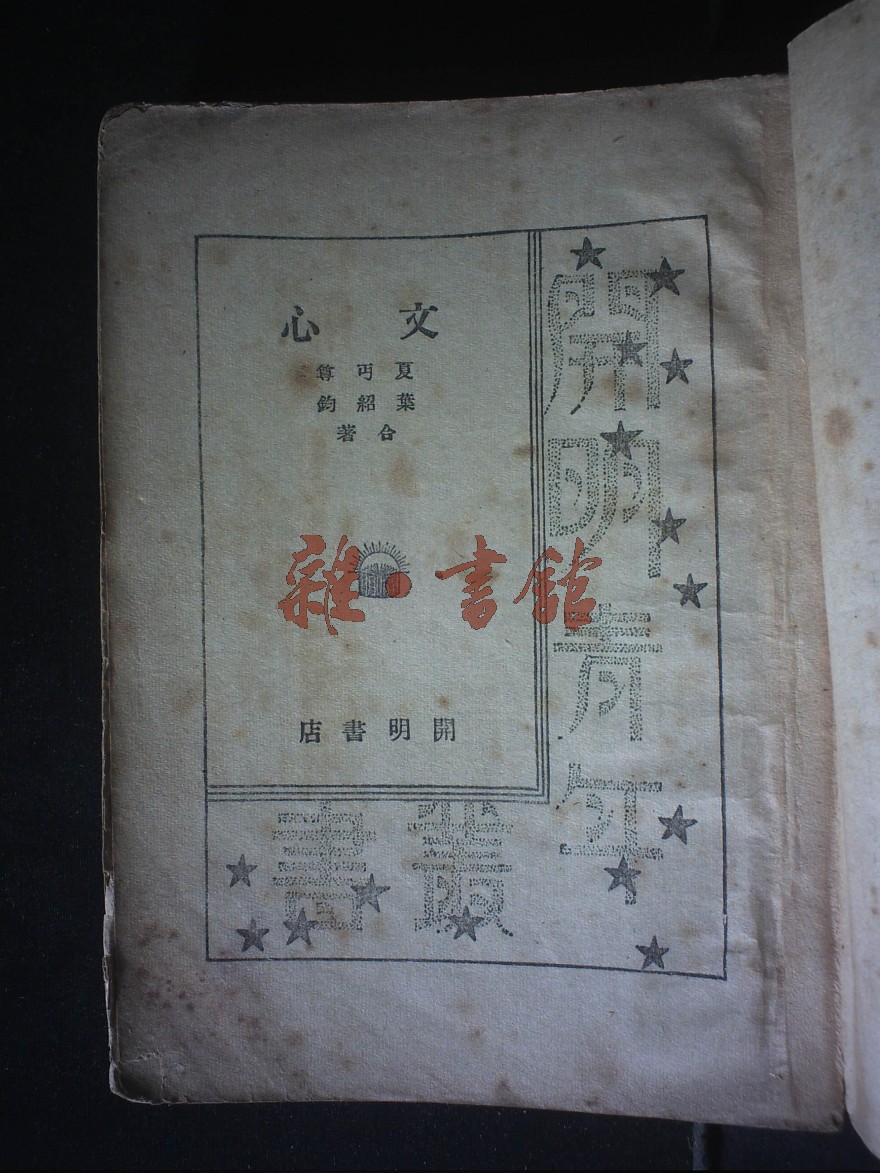 文心
夏丏尊
葉紹鈞
合著
開明書店
開明青年
叢書
雜·書館